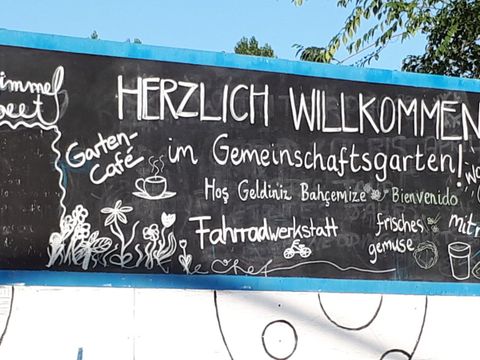 HERZLICH WILLKOMMEN
im Gemeinschaftsgarten!
Garten-
Café
Hoş Geldiniz Bahçemize Bienvenido
Fahrradwerkstatt
frisches
gemüse